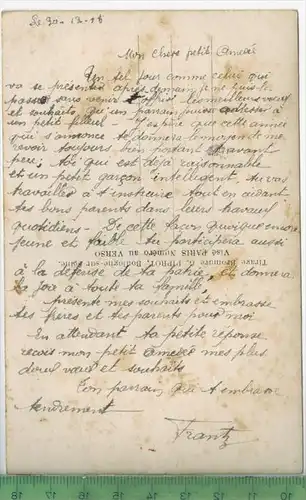 Le 30-12-18
Mon cher petit Amedé
Un tel jour comme celui qui
va se présenter après demain je ne puis le
passer sans venir t'offrir les meilleurs vœux
et souhaits qu'un parrain puisse adresser à
un petit filleul que cette année
qui s'annonce te donnera le moyen de me
revoir toujours bien portant et avant
peu; toi qui est déjà raisonnable
et un petit garçon intelligent, tu vas
travailler à t'instruire tout en aidant
tes bons parents dans leurs travaux
quotidiens - De cette façon quoique encore
jeune et faible tu participera aussi
à la défense de ta patrie, et donnera
la joie à toute ta famille,
présente mes souhaits et embrasse
tes frères et tes parents pour moi
En attendant ta petite réponse
reçois mon petit Amedé mes plus
doux vœux et souhaits
Ton parrain qui t'embrasse
tendrement
Frantz
Visé PARIS Numéro au VERSO
18 17 16 15 14 13 12 11 10